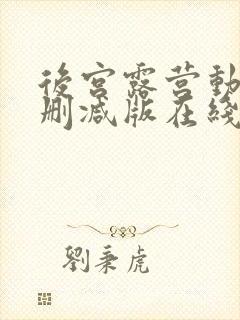 後宮露营動
删减版在綫
劉秉虎